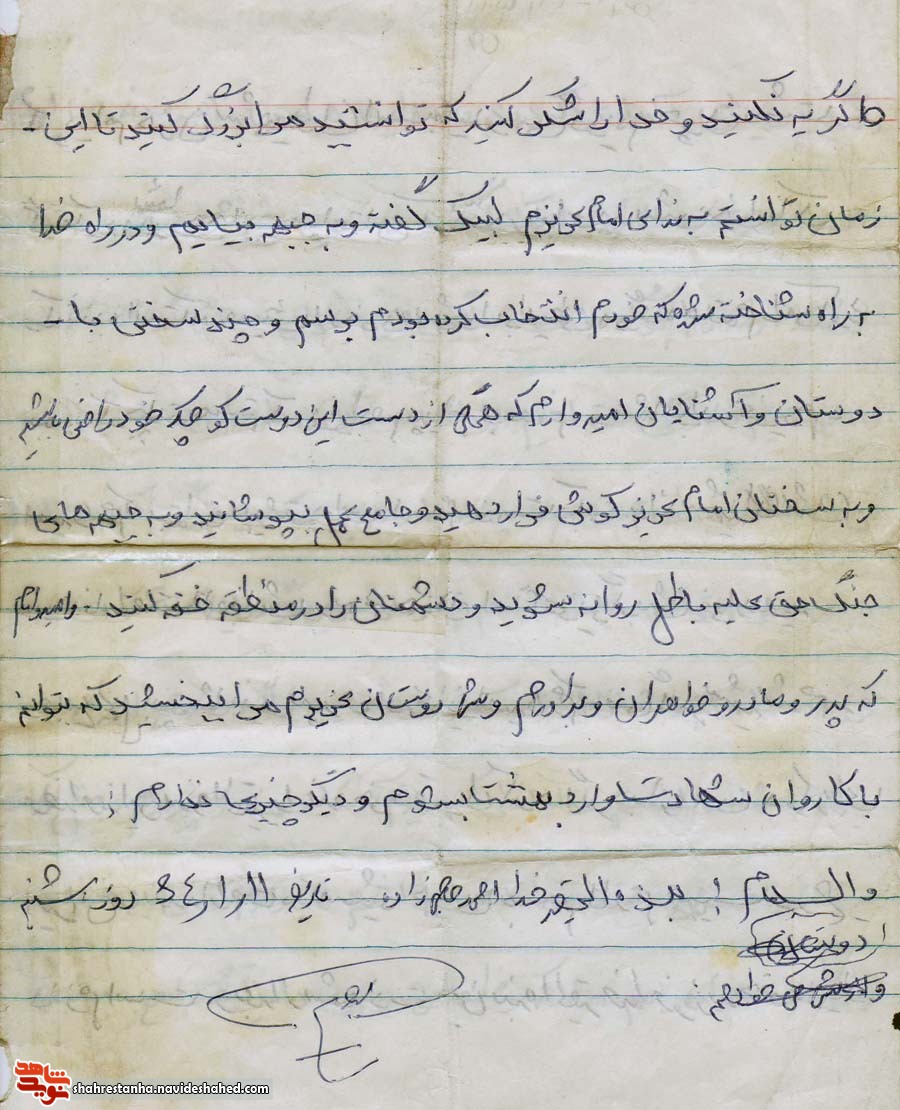 گریه نکنید و خدا را شکر کنید که توانستید مرا بزرگ کنید تا این -
زمان توانستم به ندای امام عزیزم لبیک گفته و به جبهه بیایم و در راه خدا
به راه شناخته شده که خودم انتخاب کرده بودم برسم و چند سخنی با -
دوستان و آشنایان امیدوارم که همگی از دست این دوست کوچک خود راضی باشید
و به سخنان امام عزیز گوش فرا دهید و جامع عمل بپوشانید و به جبهه های
جنگ حق علیه باطل روانه شوید و دشمنان را در منطقه خفه کنید . و امیدوارم
که پدر و مادر و خواهران و برادرانم و شما دوستان عزیزم مرا ببخشید که بتوانم
با کاروان شهادت وارد بهشت بشوم و دیگر چیزی ندارم .
والسلام ! بنده الحقیر خدا احمد حاجی زاده تاریخ روز شنبه
نوید شاهد
shahrestanha.navideshahed.com